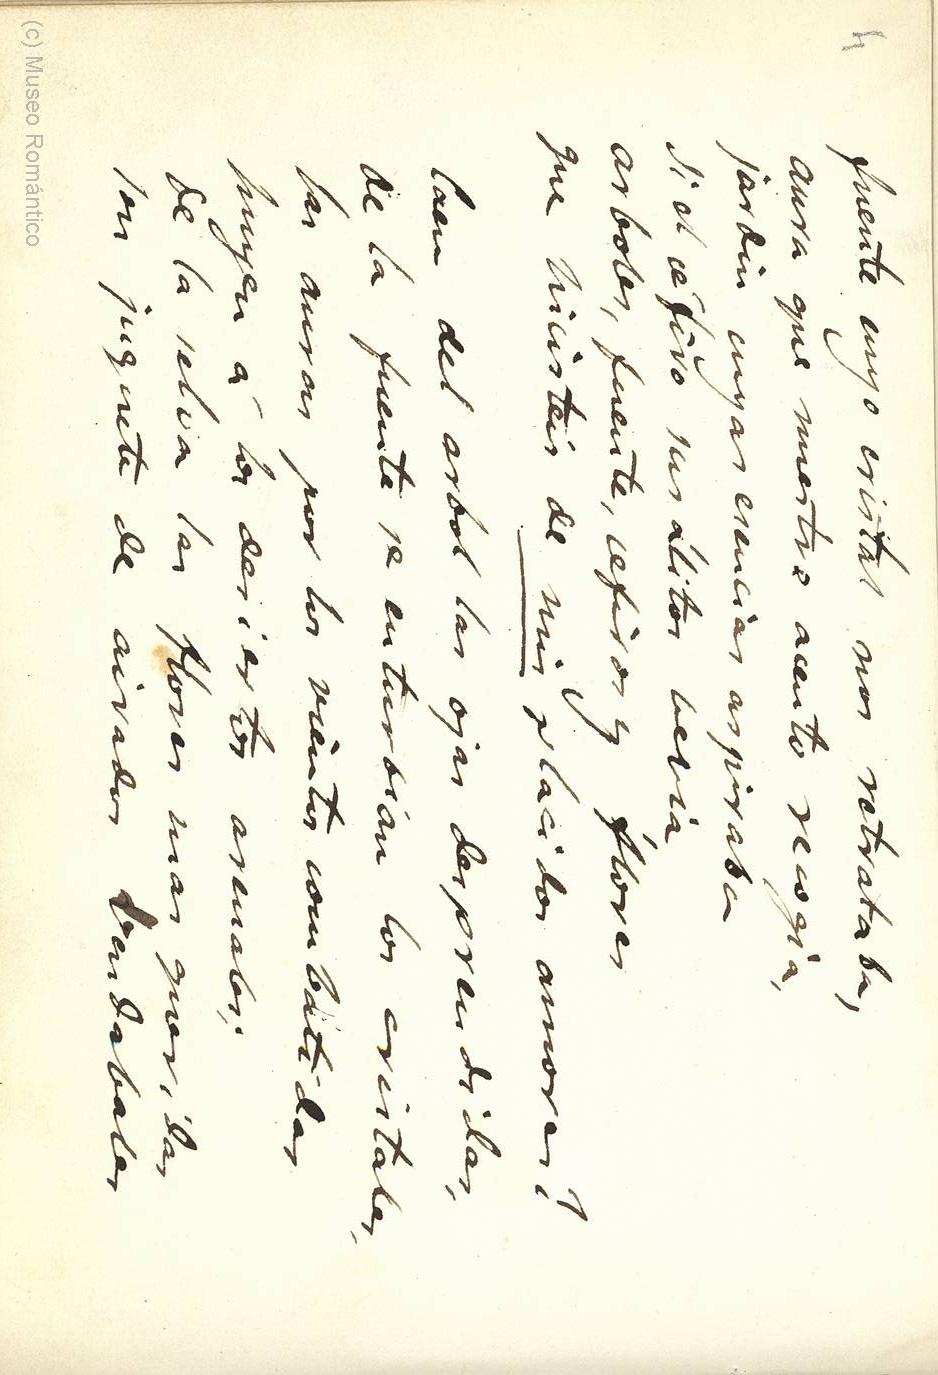 fuente cuyo cristal nos retrataba,
aura que nuestro acento recogia,
jardin cuyas esencias aspiraba
si el cefiro sus álitos bevia
arboles, fuente, cefiros y flores
que hicisteis de mis placidos amores?
Caen del arbol las ojas desprendidas,
de la fuente se enturbian los cristales,
las auras por los vientos combatidas
huyen á los desiertos arenales;
de la selva las flores mas queridas
son juguete de airados bendabales
(c) Museo Romántico